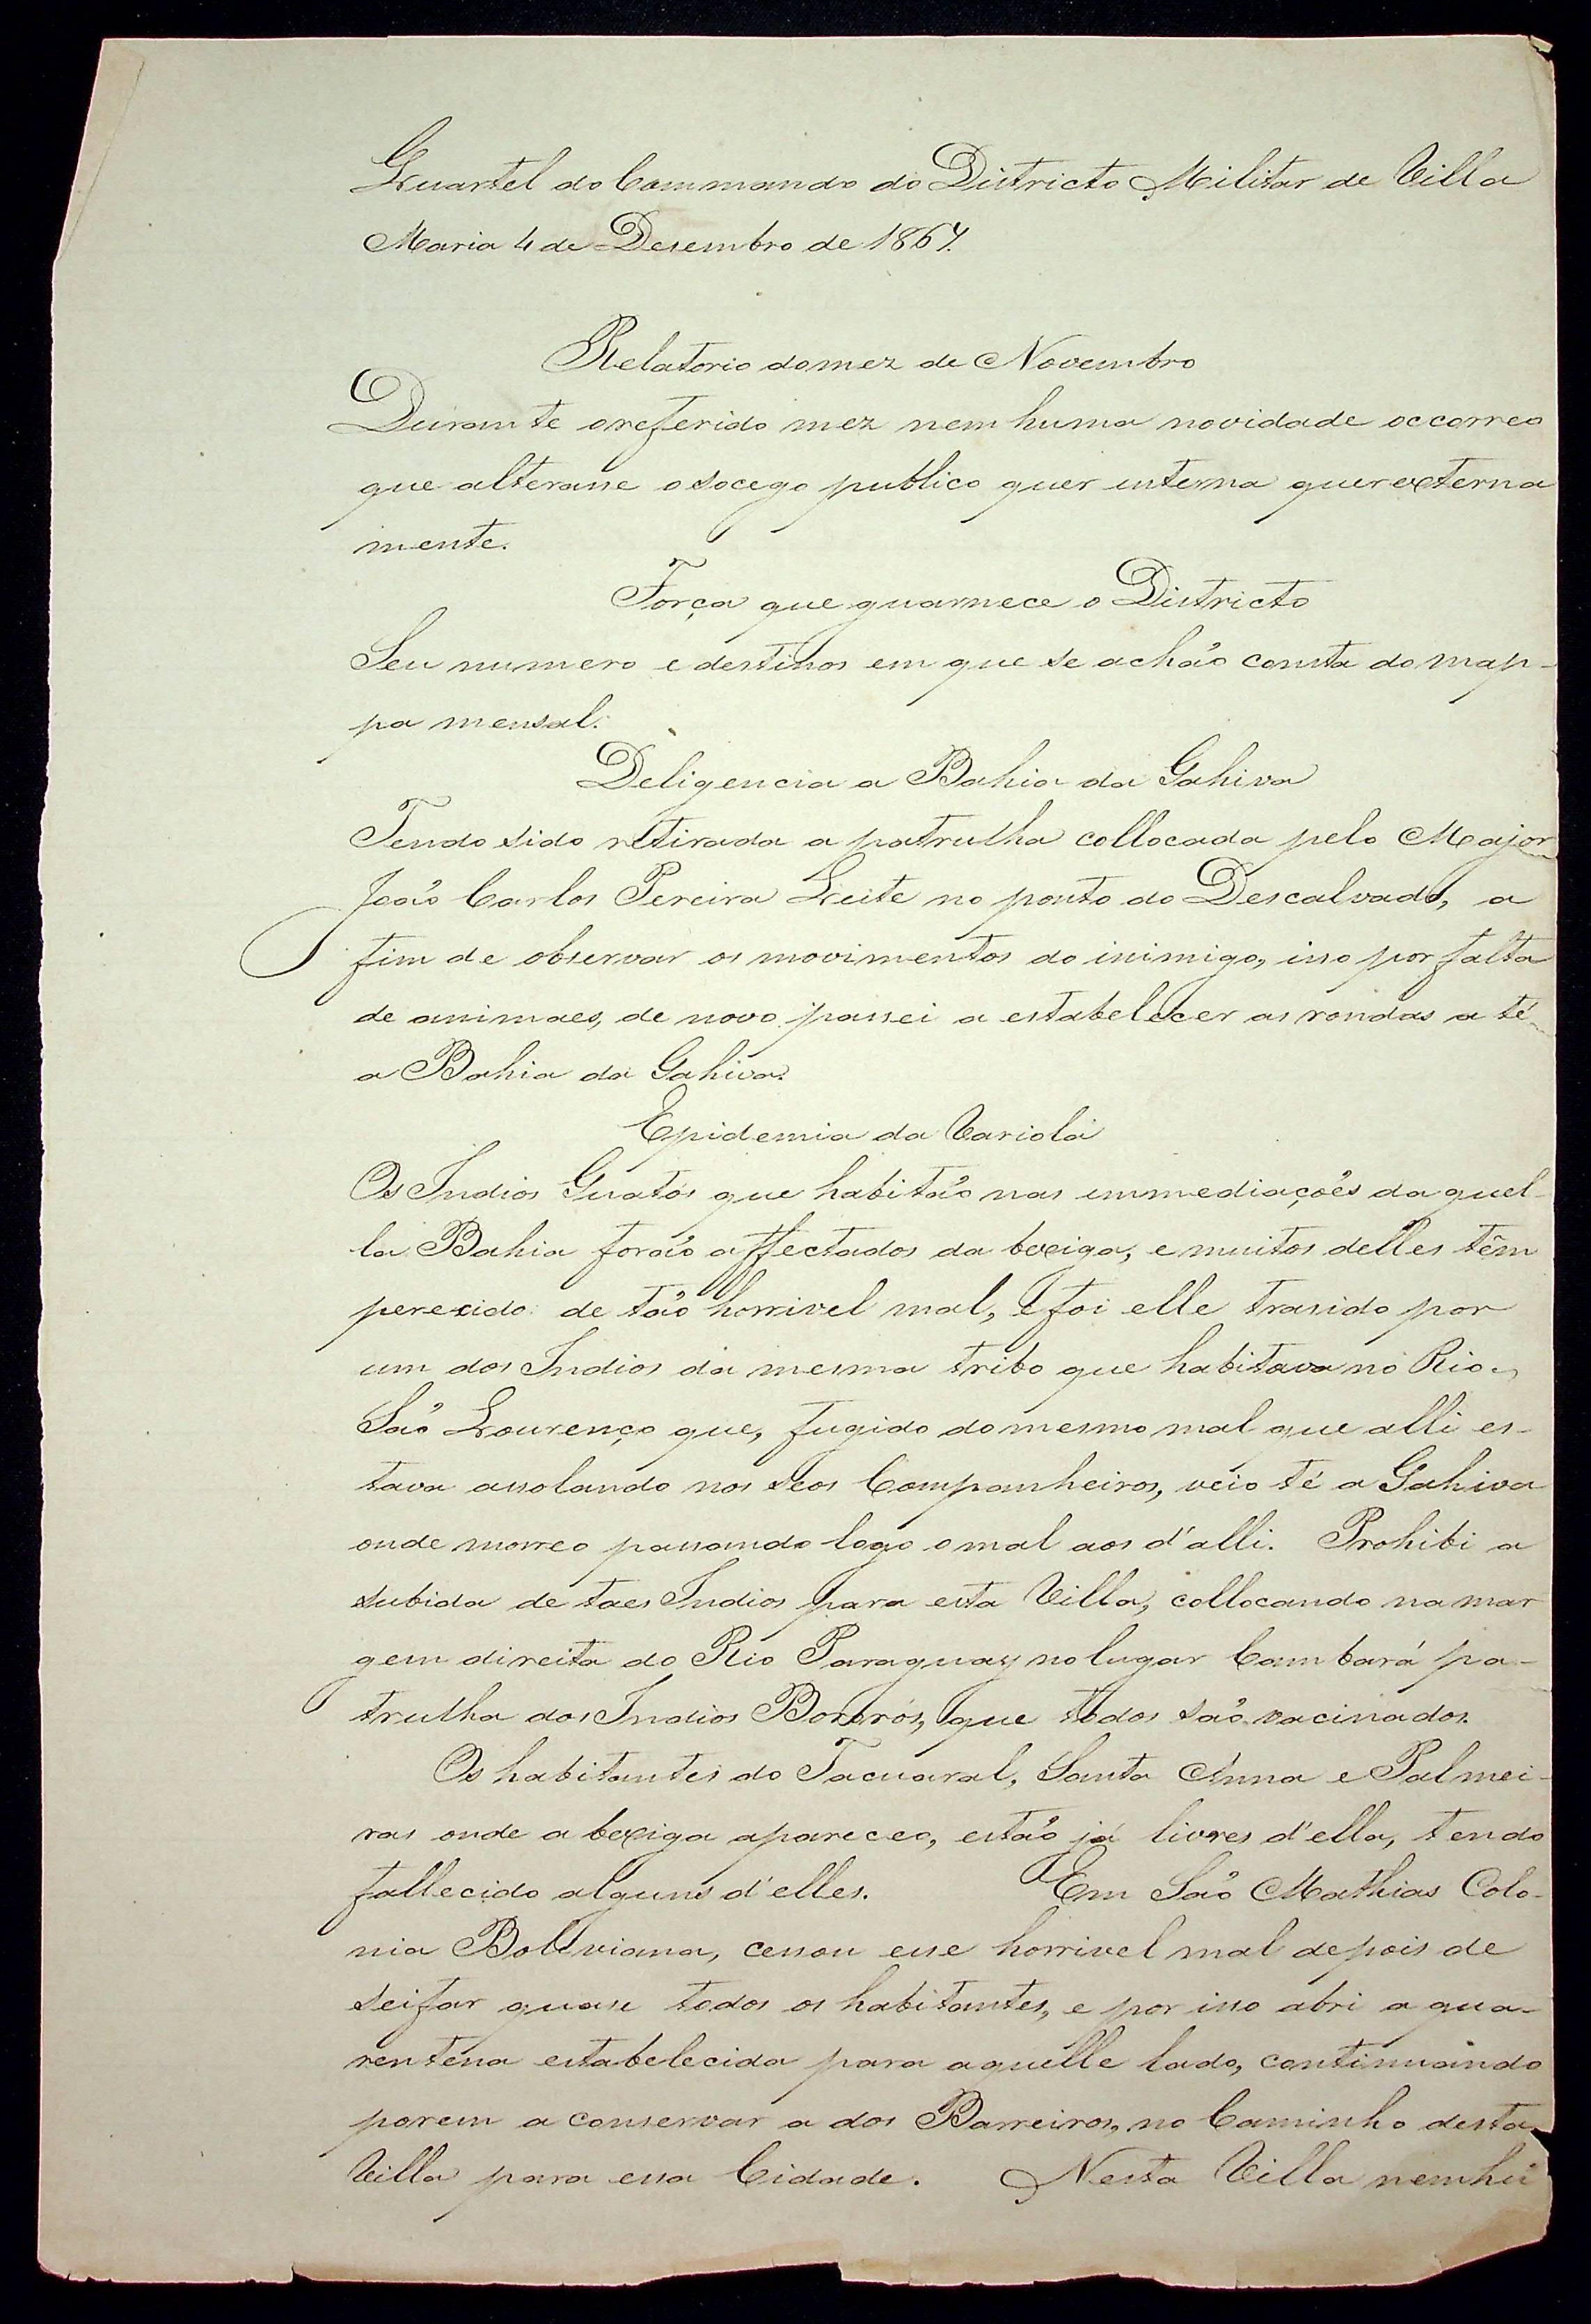 Quartel do Commando do Districto Militar de Villa
Maria 4 de Desembro de 1867.
Relatorio do mez de Novembro
Durante o referido mez nem huma novidade occorreo
que alterasse o socego publico quer interna quer externa
mente.
Força que guarnece o Districto
Seu numero e destinos em que se achão consta do map-
pa mensal.
Deligencia a Bahia da Gahiva
Tendo sido retirada a patrulha collocada pelo Major
João Carlos Pereira Leite no ponto do Descalvado, a
fim de observar os movimentos do inimigo, isso por falta
de animaes, de novo passei a estabelecer as rondas a té
a Bahia da Gahiva.
Epidemia da Variola
Os Indios Guatós que habitão nas immediações daquel-
la Bahia forão affectados da bexiga, e muitos delles têm
perecido de tão horrivel mal, e foi elle trasido por
um dos Indios da mesma tribo que habitava no Rio
São Lourenço que, fugido do mesmo mal que alli es-
tava assolando nos seos Companheiros, veio té a Gahiva
onde morreo passando logo o mal aos d'alli. Prohibi a
subida de taes Indios para esta Villa, collocando na mar
gem direita do Rio Paraguay no lugar Cambará pa-
trulha dos Indios Bororós, que todos são vacinados.
Os habitantes do Tacuaral, Santa Anna e Palmei-
ras onde a bexiga apareceo, estão já livres d'ella, tendo
fallecido alguns d'elles. Em São Mathias Colo-
nia Boliviana, cessou esse horrivel mal depois de
seifar quase todos os habitantes, e por isso abri a qua-
rentena estabelecida para aquelle lado, continuando
porem a conservar a dos Barreiros, no Caminho desta
Villa para essa Cidade. Nesta Villa nemhũ